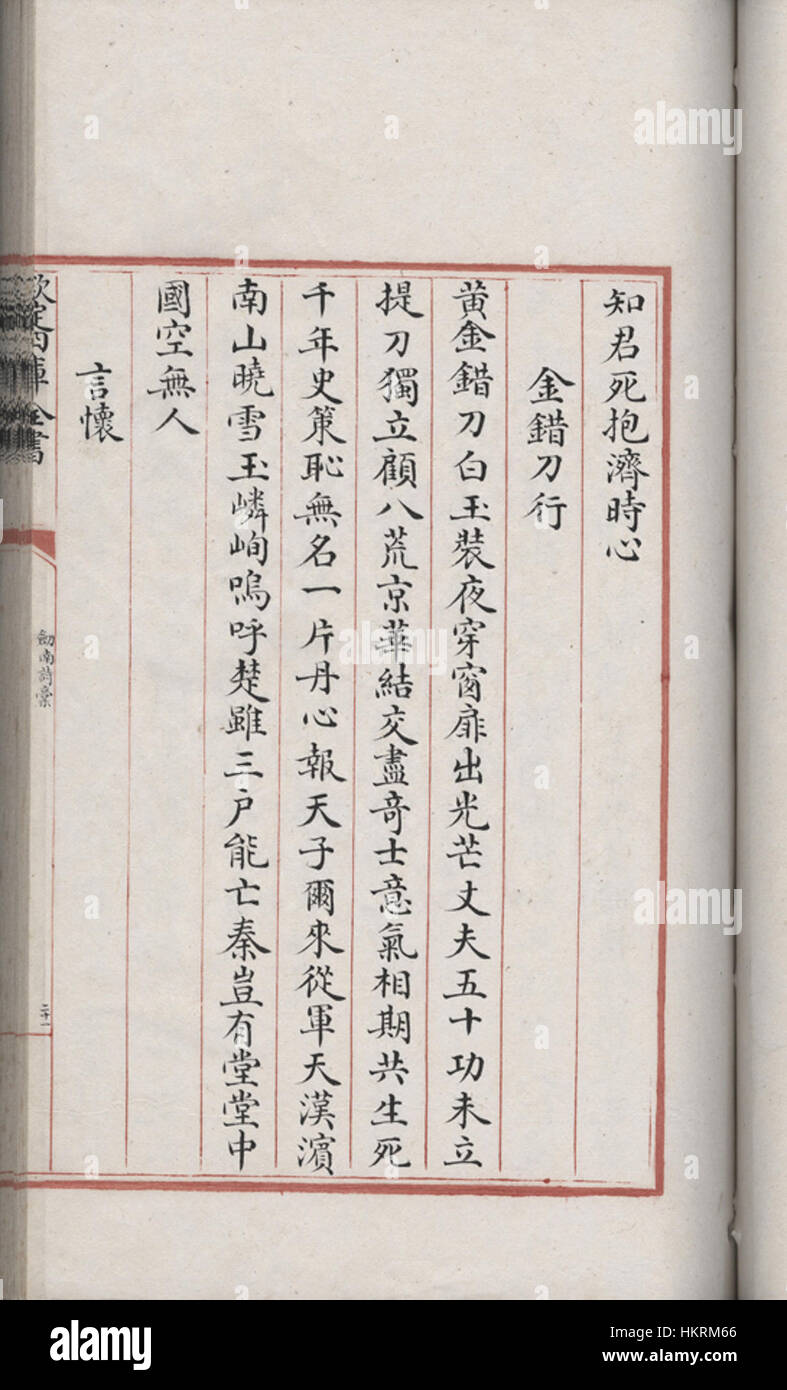 知君死抱濟時心
金錯刀行
黄金錯刀白玉裝夜穿窗扉出光芒丈夫五十功未立
提刀獨立顧八荒京華結交盡奇士意氣相期共生死
千年史策恥無名一片丹心報天子爾來從軍天漢濱
南山曉雪玉嶙峋嗚呼楚雖三戶能亡秦豈有堂堂中
國空無人
言懷
欽定四庫全書
劔南詩稾
二十一
alamy
alamy
alamy
a
alamy
Image ID: HKRM66
www.alamy.com